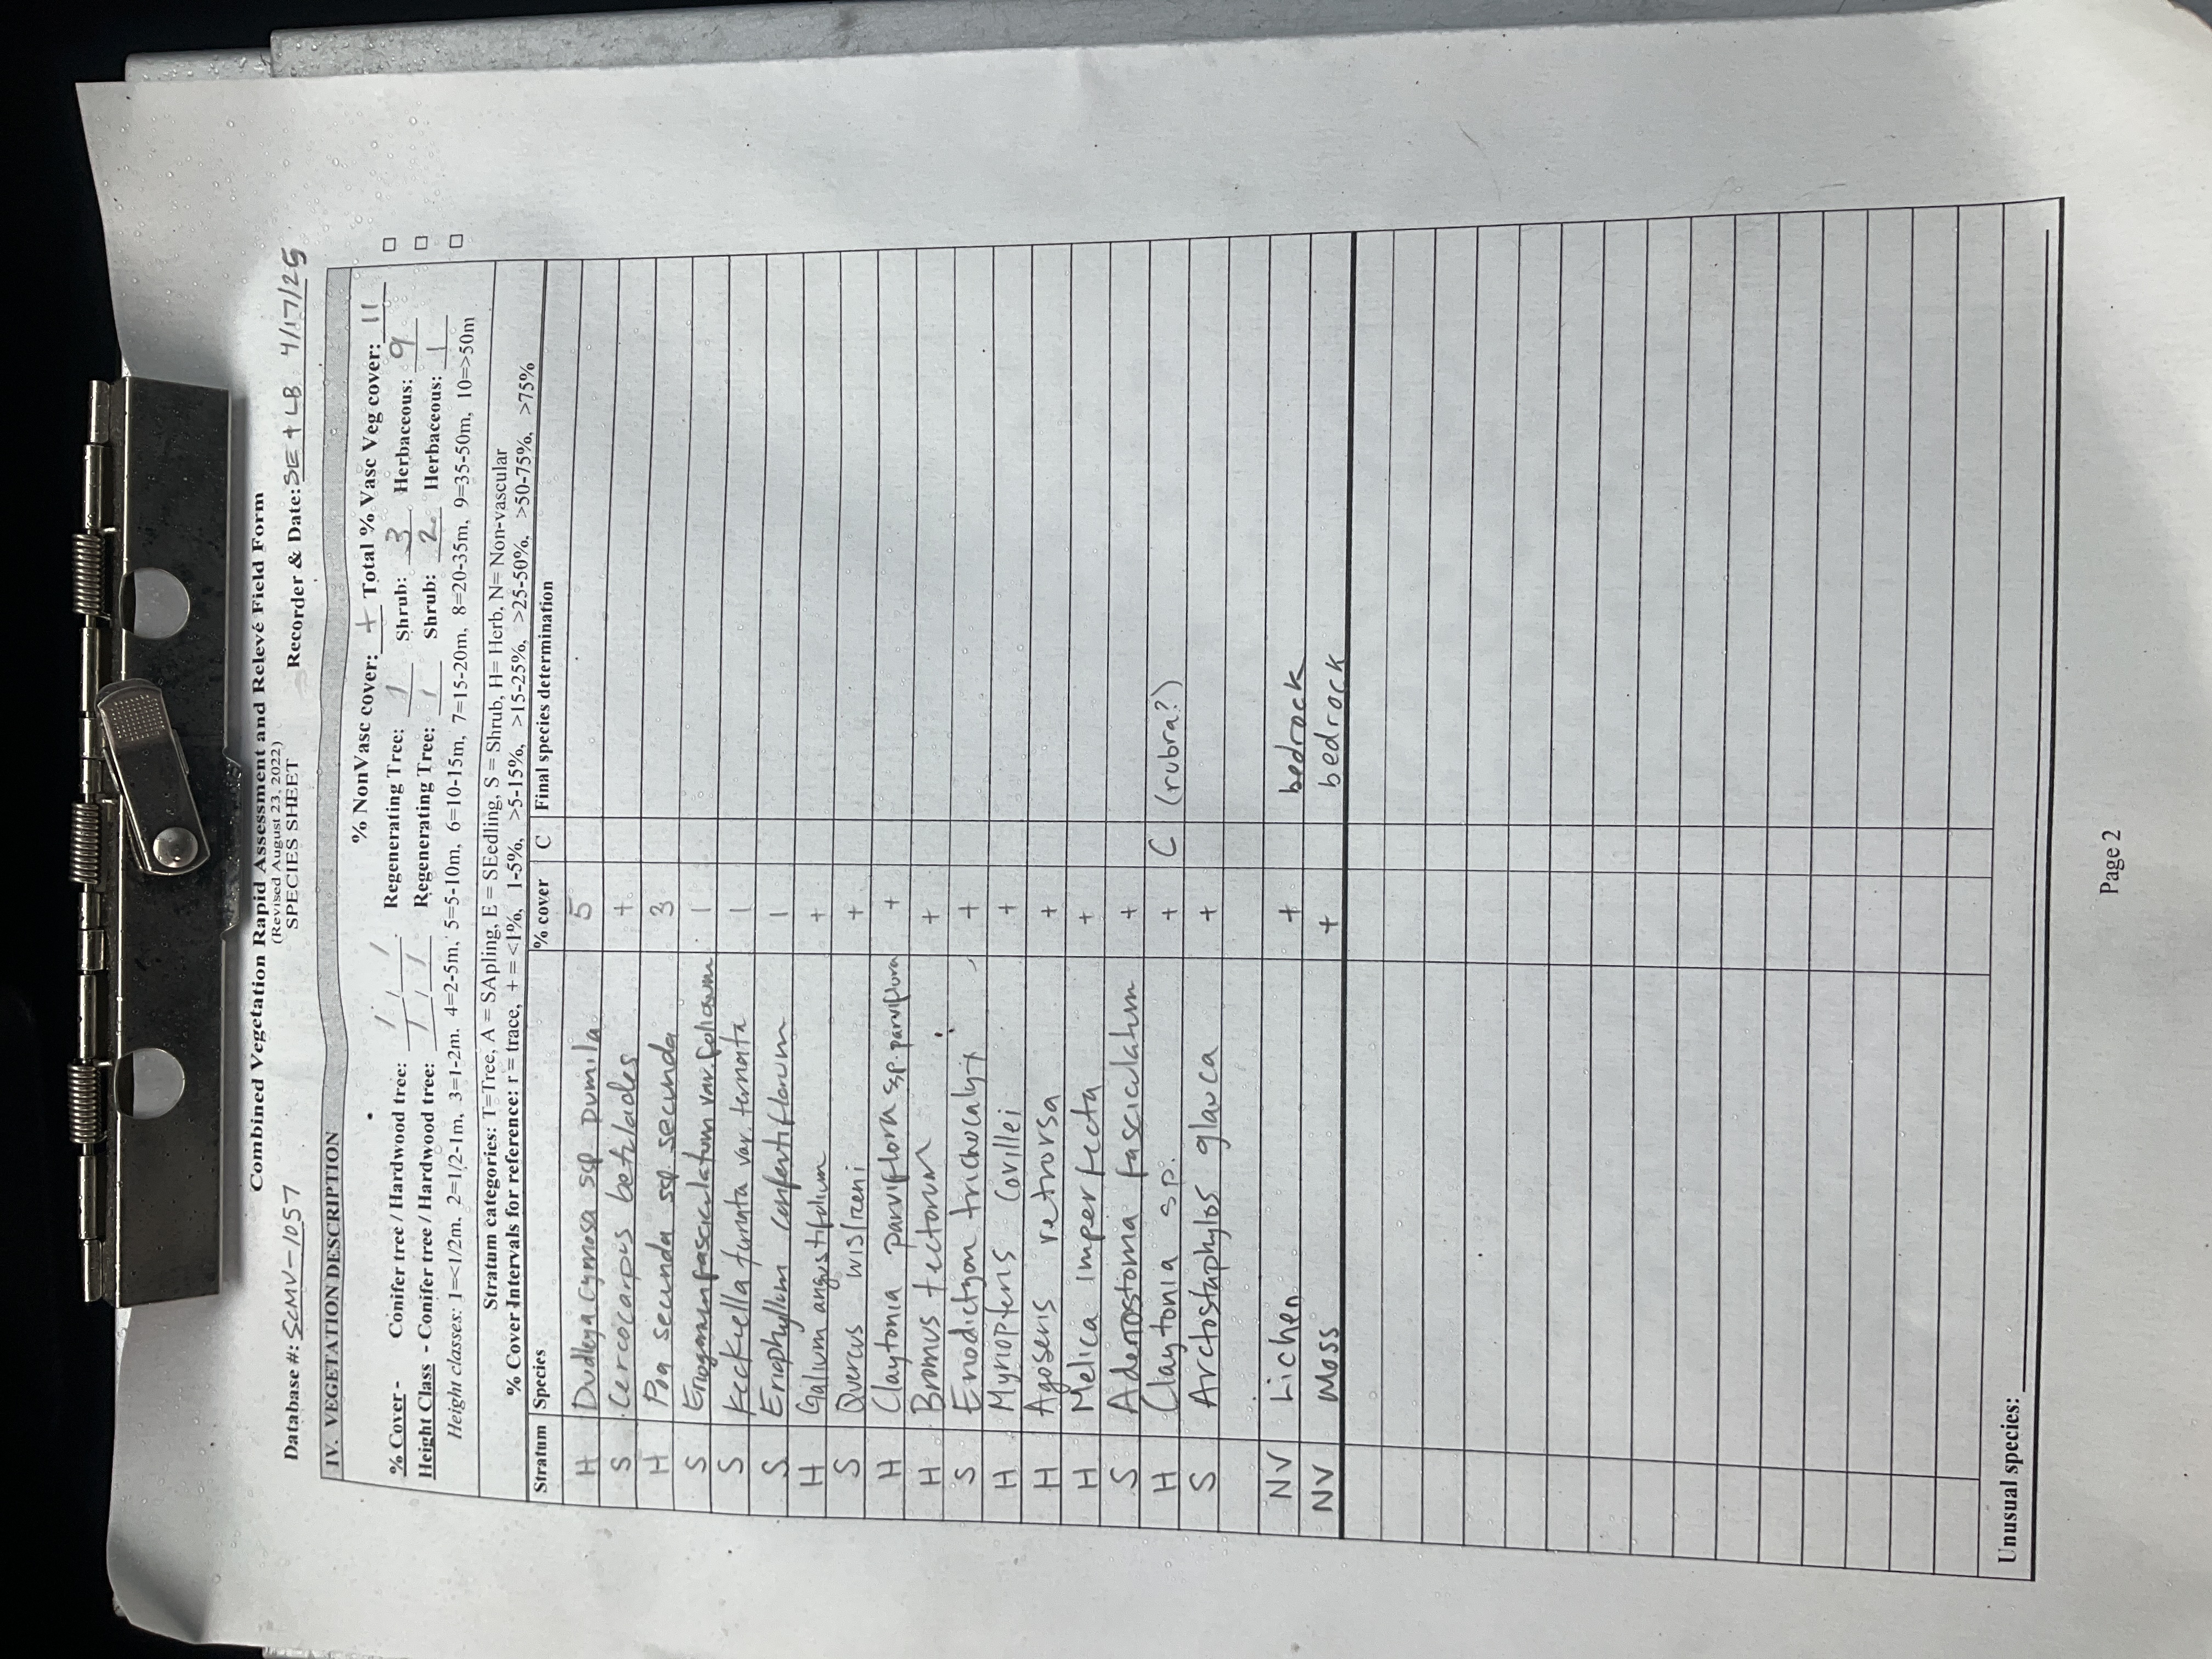 Combined Vegetation Rapid Assessment and Relevé Field Form
(Revised August 23, 2022)
SPECIES SHEET
Database #: SCMV-1057 Recorder & Date: SE + LB 4/17/25
IV. VEGETATION DESCRIPTION
% NonVasc cover: + Total % Vasc Veg cover: 11
% Cover - Conifer tree / Hardwood tree: / / / Regenerating Tree: / Shrub: 3 Herbaceous: 9
Height Class - Conifer tree / Hardwood tree: / / / Regenerating Tree: / Shrub: 2 Herbaceous: 1
Height classes: 1=<1/2m. 2=1/2-1m, 3=1-2m. 4=2-5m, 5=5-10m, 6=10-15m, 7=15-20m, 8=20-35m, 9=35-50m, 10=>50m
Stratum categories: T=Tree, A = SApling, E = SEedling, S = Shrub, H= Herb, N= Non-vascular
% Cover Intervals for reference: r = trace, + = <1%, 1-5%, >5-15%, >15-25%, >25-50%, >50-75%, >75%
Stratum Species % cover C Final species determination
H Dudleya cymosa ssp pumila 5
S Cercocarpus betuloides +
H Poa secunda ssp. secunda 3
S Eriogonum fasciculatum var. foliosum 1
S Keckiella ternata var. ternata 1
S Eriophyllum confertiflorum 1
H Galium angustifolium +
S Quercus wislizeni +
H Claytonia parviflora sp. parviflora +
H Bromus tectorum +
S Eriodictyon trichocalyx +
H Myriopteris covillei +
H Agoseris retrorsa +
H Melica imperfecta +
S Adenostoma fasciculatum +
H Claytonia sp. + C (rubra?)
S Arctostaphylos glauca +
NV Lichen + bedrock
NV Moss + bedrock
Unusual species:
Page 2